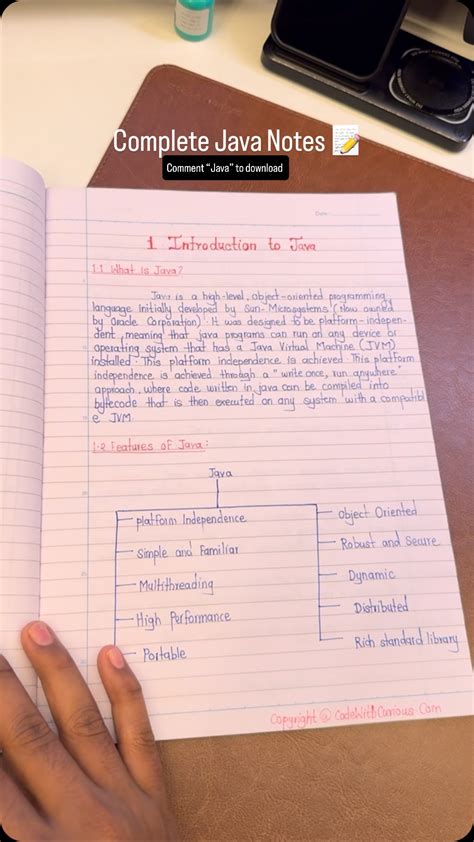 Complete Java Notes 📝
Comment “Java” to download
Date
1. Introduction to Java
1.1 What is Java?
Java is a high-level, object-oriented programming
language initially developed by Sun Microsystems (now owned
by Oracle Corporation). It was designed to be platform-indepen-
dent, meaning that java programs can run on any device or
operating system that has a Java Virtual Machine (JVM)
installed. This platform independence is achieved This platform
independence is achieved through a "write once, run anywhere"
approach, where code written in java can be compiled into
bytecode that is then executed on any system with a compatibl
e JVM.
1.2 Features of Java:
Java
platform Independence
Object Oriented
Simple and Familiar
Robust and Secure
Multithreading
Dynamic
High Performance
Distributed
Portable
Rich standard library
Copyright © CodeWithCurious.Com